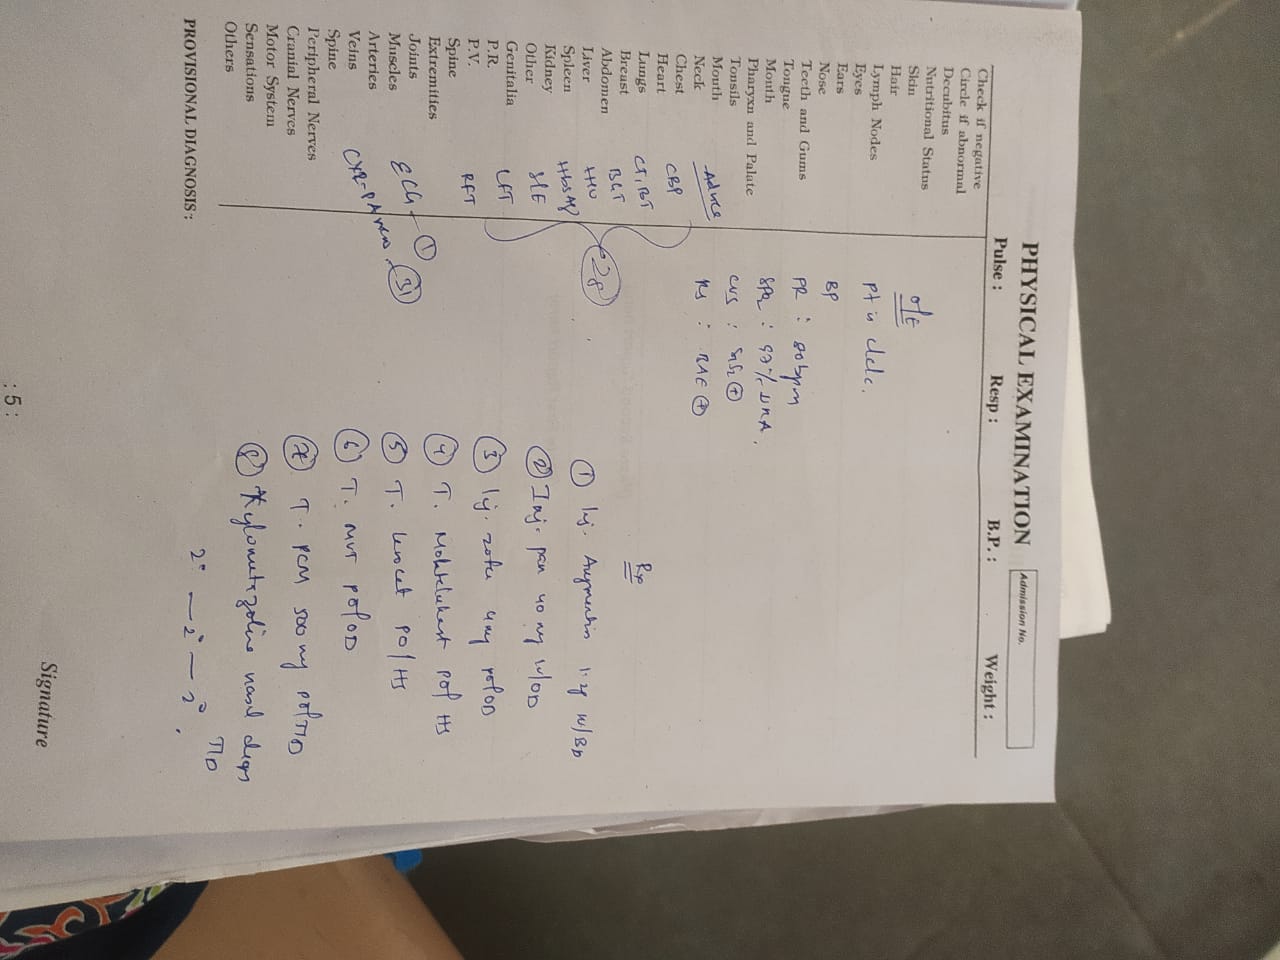 PHYSICAL EXAMINATION
Admission No.
Pulse : Resp : B.P. : Weight :
Check if negative
Circle if abnormal
Decubitus
Nutritional Status
Skin
Hair
Lymph Nodes
Eyes
Ears
Nose
Teeth and Gums
Tongue
Mouth
Pharyxn and Palate
Tonsils
Mouth
Neck
Chest
Heart
Lungs
Breast
Abdomen
Liver
Spleen
Kidney
Other
Genitalia
P.R.
P.V.
Spine
Extremities
Joints
Muscles
Arteries
Veins
Spine
Peripheral Nerves
Cranial Nerves
Motor System
Sensations
Others
PROVISIONAL DIAGNOSIS :
O/E
Pt is c/c/c.
BP
PR : 80 bpm
SPO2 : 97% RA.
CVS : S1S2 +
RS : BAE +
Advice
CBP
CT, BT
HIV
HbsAg
LFT
RFT
ECG - 1
CXR-PA view
Rx
1 Inj. Augmentin 1.2g IV/BD
2 Inj. pan 40 mg IV/OD
3 Inj. zofer 4mg
4 T. Montelukast PO/HS
5 T. levocet PO/HS
6 T. MVT PO/OD
7 T. PCM 500 mg PO/TID
8 Xylometazoline nasal drops
2° — 2° — 2° TID
Signature
:5: